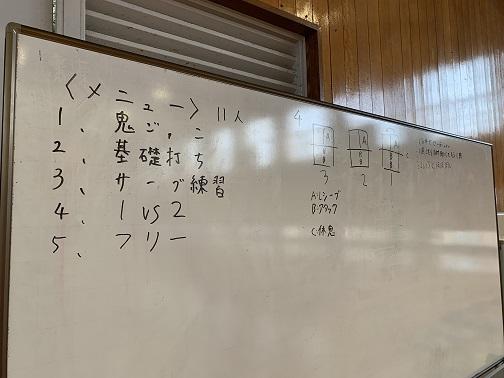 〈メニュー〉 11人
1、鬼ごこ
2、基礎打ち
3、サーブ練習
4、1vs2
5、フリー
4
A A
B B B
3 2 1
A:レシーブ
B:アタック
C:休息